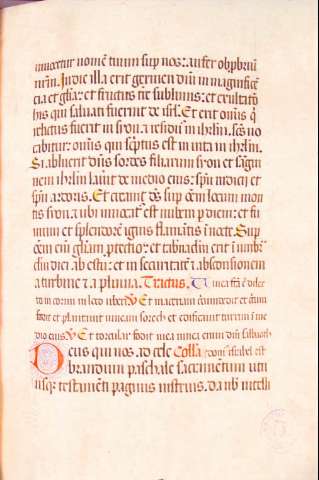 inuocetur nomē tuum sup nos: aufer obprbriū
nrm̄. In die illa erit germen dn̄i in magnificē
cia et glīa: et fructus tr̄e sublimis: et exultatio
hijs qui saluati fuerint de isrl̄. Et erit om̄is q̇
relictus fuerit in sion. ⁊ residuˢ in ihrlm̄. scs̄ uo
cabitur: om̄is qui sc̄ptus est in uita in ihrlm̄.
Si abluerit dn̄s sordes filiarum sion et sāgui
nem ihrlm̄ lauit de medio eius: sp̄u iudicij et
sp̄u ardoris. Et creauit dn̄s sup om̄em locum mon
tis sion. ⁊ ubi inuocatˢ est nubem p diem: et fu
mum et splendorē ignis flamātis ī nocte. Sup
om̄em eni glīam protectio: et tabnaclm̄ erit ī umbrā
clm̄ diei ab estu: et in securitatē ⁊ absconsionem
a turbine ⁊ a pluuia. Tractus. Uinea fcā ē dilec
to in cornu in loco uberi. V̄ Et maceriam circundedit et circū
fodit et plantauit uineam sorech et edificauit turrim ī me
dio eius. V̄ Et torcular fodit in ea uinea enim dn̄i sabaoth
Deus qui nos. ad cele Colla domˢ isrl̄ est
brandum paschale sacramentum utri
usq; testamēti paginis instruis. da nob intelli